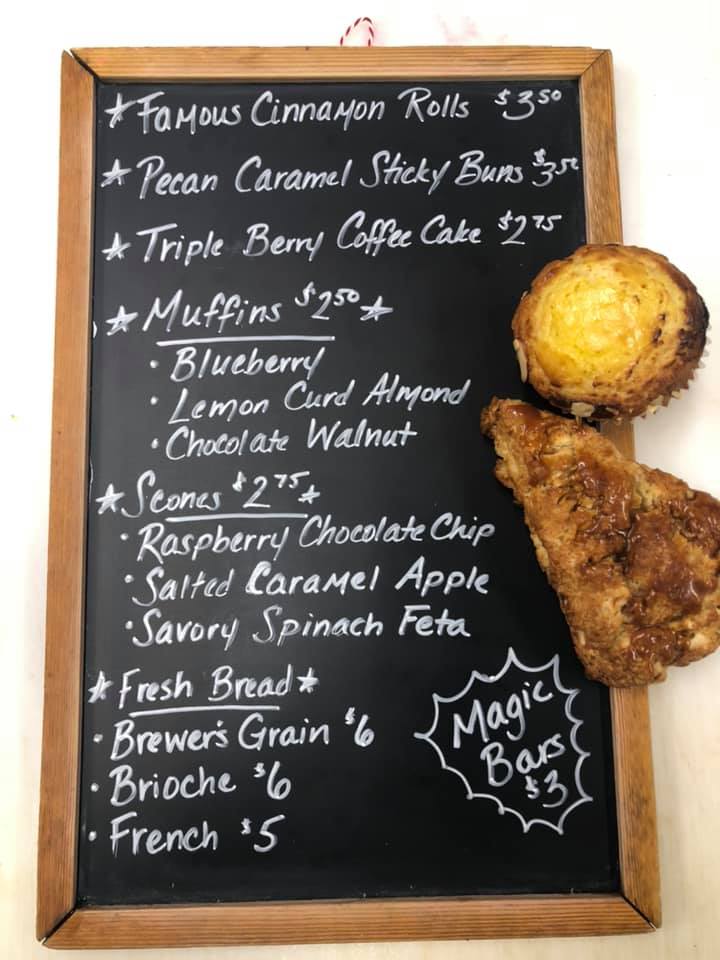 ★ Famous Cinnamon Rolls $3.50
★ Pecan Caramel Sticky Buns $3.50
★ Triple Berry Coffee Cake $2.75
★ Muffins $2.50 ★
• Blueberry
• Lemon Curd Almond
• Chocolate Walnut
★ Scones $2.75 ★
• Raspberry Chocolate Chip
• Salted Caramel Apple
• Savory Spinach Feta
★ Fresh Bread ★
• Brewer's Grain $6
• Brioche $6
• French $5
Magic
Bars
$3